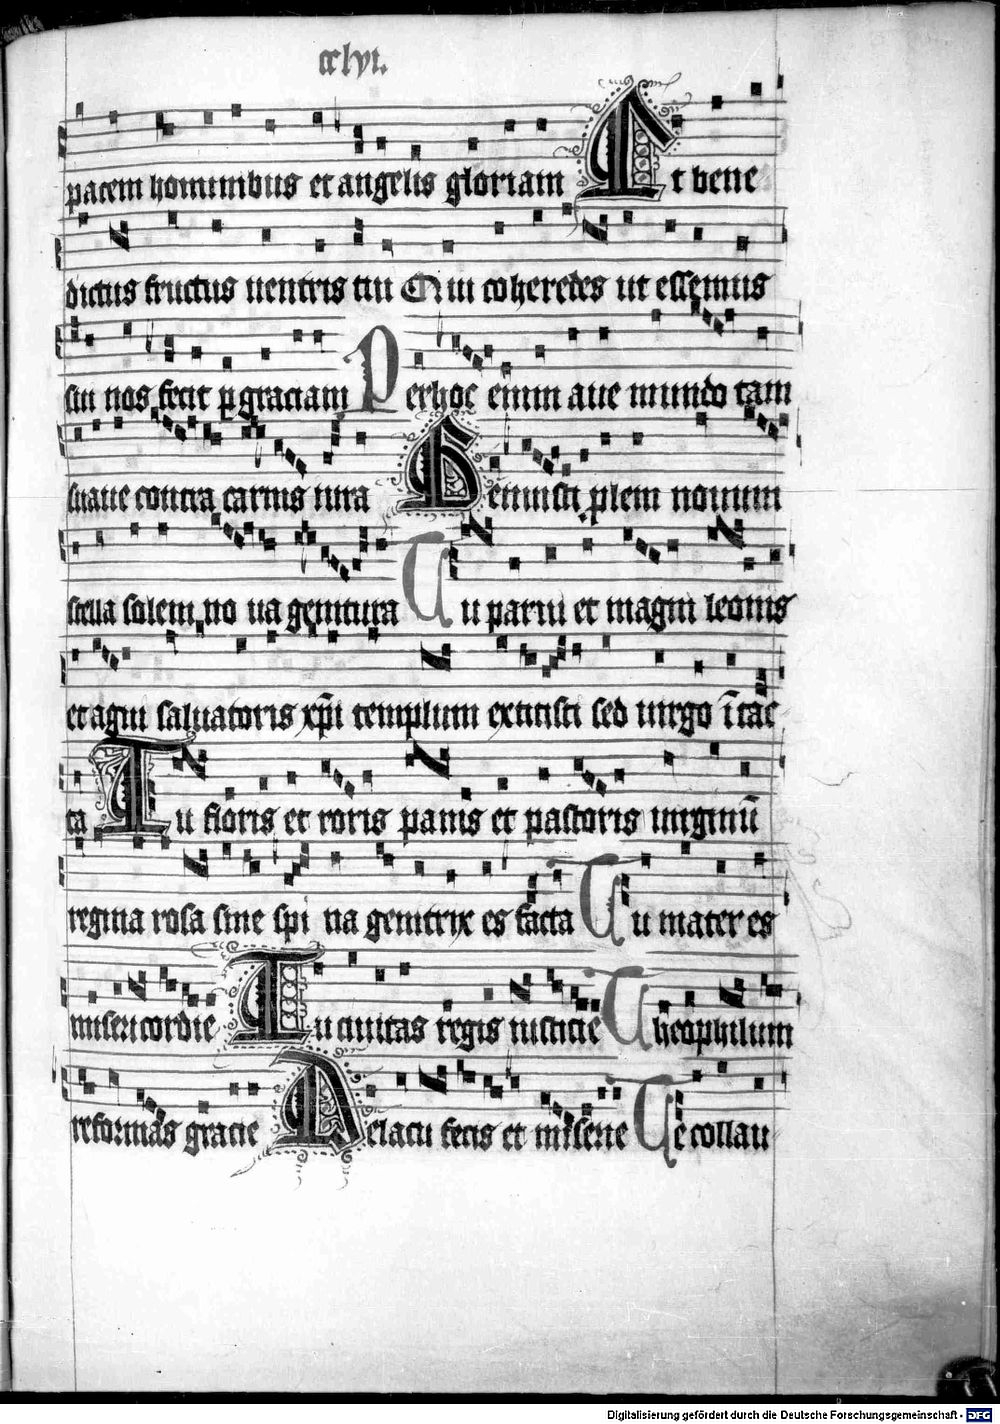 cclvi.
pacem hominibus et angelis gloriam Et bene
dictus fructus uentris tui Qui coheredes ut essemus
sui nos fecit p graciam Per hoc enim aue mundo tam
suaue contra carnis iura Genuisti plem nouum
stella solem no ua genitura Tu parui et magni leonis
et agni saluatoris xpi templum extitisti sed uirgo itac
ta Tu floris et roris panis et pastoris uirginu
regina rosa sine spi na genitrix es facta Tu mater es
misericordie Tu ciuitas regis iusticie Theophilum
reformas gracie De lacu fecis et miserie Te collau
Digitalisierung gefördert durch die Deutsche Forschungsgemeinschaft - DFG